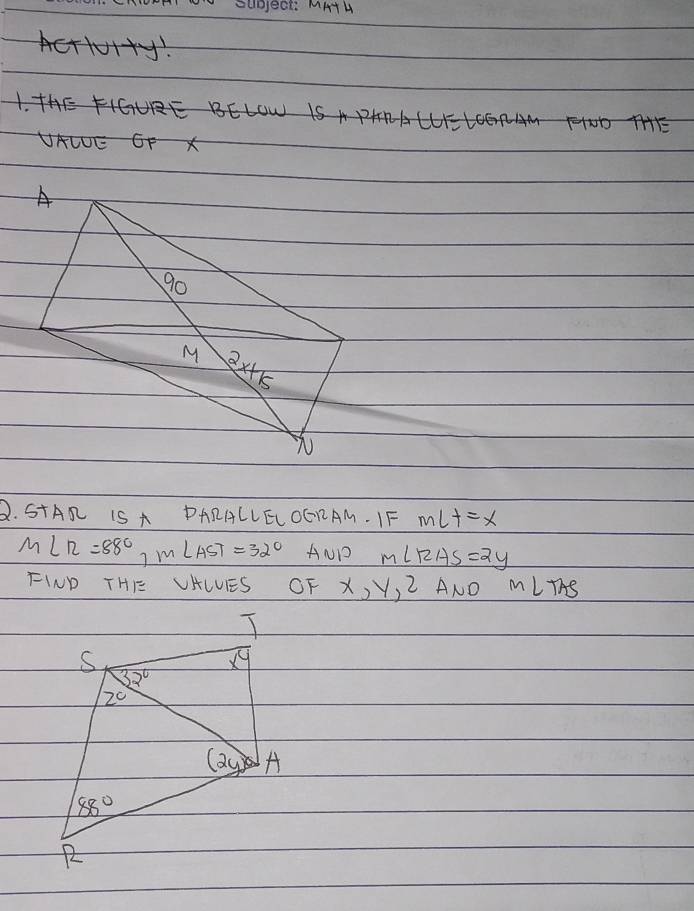 Subject: MATH
ACTIVITY!
1. THE FIGURE BELOW IS A PARALLELOGRAM FIND THE
VALUE OF X
A
90
M
2x+15
N
2. STAR IS A PARALLELOGRAM. IF m∠t=x
M∠R=88°, m∠AST=32° AND m∠RAS=2y
FIND THE VALUES OF X, Y, Z AND M∠TAS
T
S
32°
x°
z°
(2y)°
A
88°
R